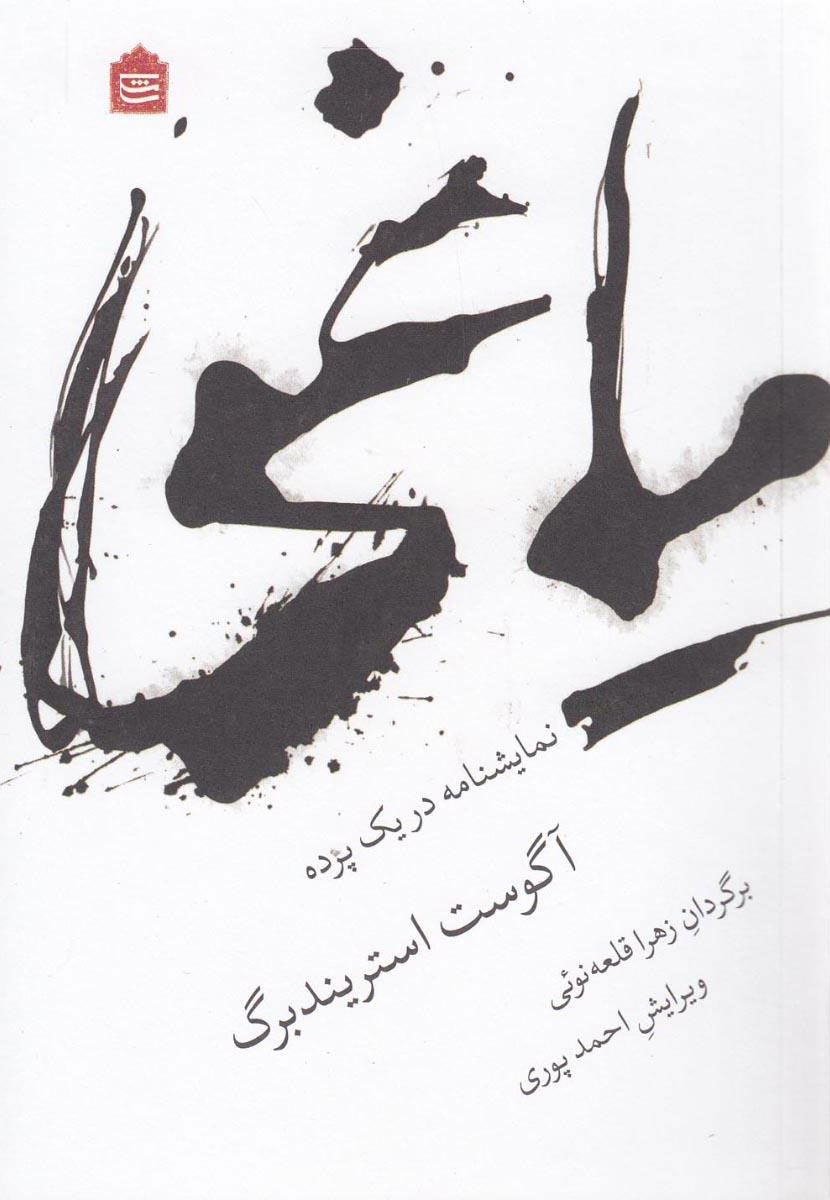 نمایشنامه در یک پرده
آگوست استریندبرگ
برگردانِ زهرا قلعه‌نوئی
ویرایشِ احمد پوری